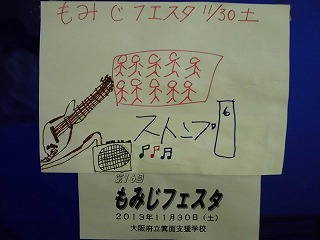 もみじフェスタ 11/30 土
ストンプ
6
第16回
もみじフェスタ
2013年11月30日(土)
大阪府立箕面支援学校